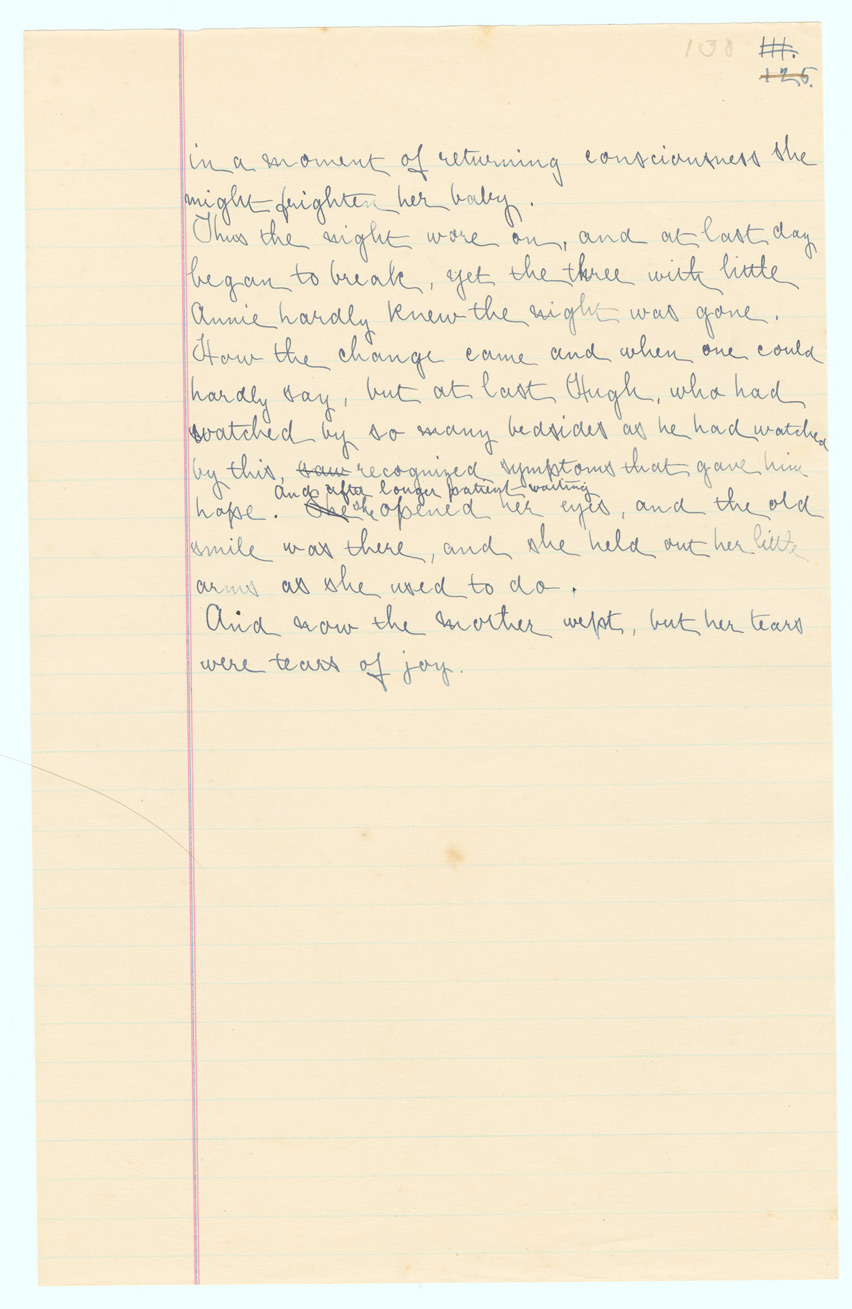 138 111.
125.
in a moment of returning consciousness she
might frighten her baby.
Thus the night wore on, and at last day
began to break, yet the three with little
Annie hardly knew the night was gone.
How the change came and when one could
hardly say, but at last Hugh, who had
watched by so many bedsides as he had watched
by this, saw recognized symptoms that gave him
And after longer patient waiting
hope. She she opened her eyes, and the old
smile was there, and she held out her little
arms as she used to do.
And now the mother wept, but her tears
were tears of joy.